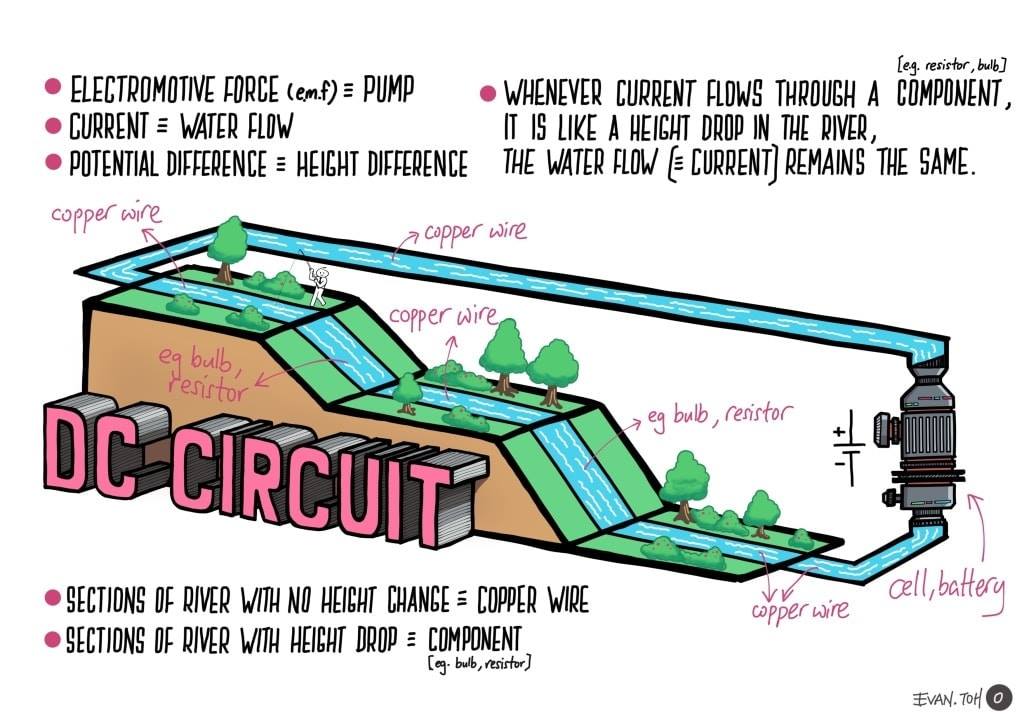 ELECTROMOTIVE FORCE (e.m.f) ≡ PUMP
CURRENT ≡ WATER FLOW
POTENTIAL DIFFERENCE ≡ HEIGHT DIFFERENCE
[e.g. resistor, bulb]
WHENEVER CURRENT FLOWS THROUGH A COMPONENT,
IT IS LIKE A HEIGHT DROP IN THE RIVER,
THE WATER FLOW [≡ CURRENT] REMAINS THE SAME.
copper wire
copper wire
copper wire
eg bulb,
resistor
eg bulb, resistor
+
-
DC CIRCUIT
cell, battery
copper wire
SECTIONS OF RIVER WITH NO HEIGHT CHANGE ≡ COPPER WIRE
SECTIONS OF RIVER WITH HEIGHT DROP ≡ COMPONENT
[eg. bulb, resistor]
EVAN.TOH 0